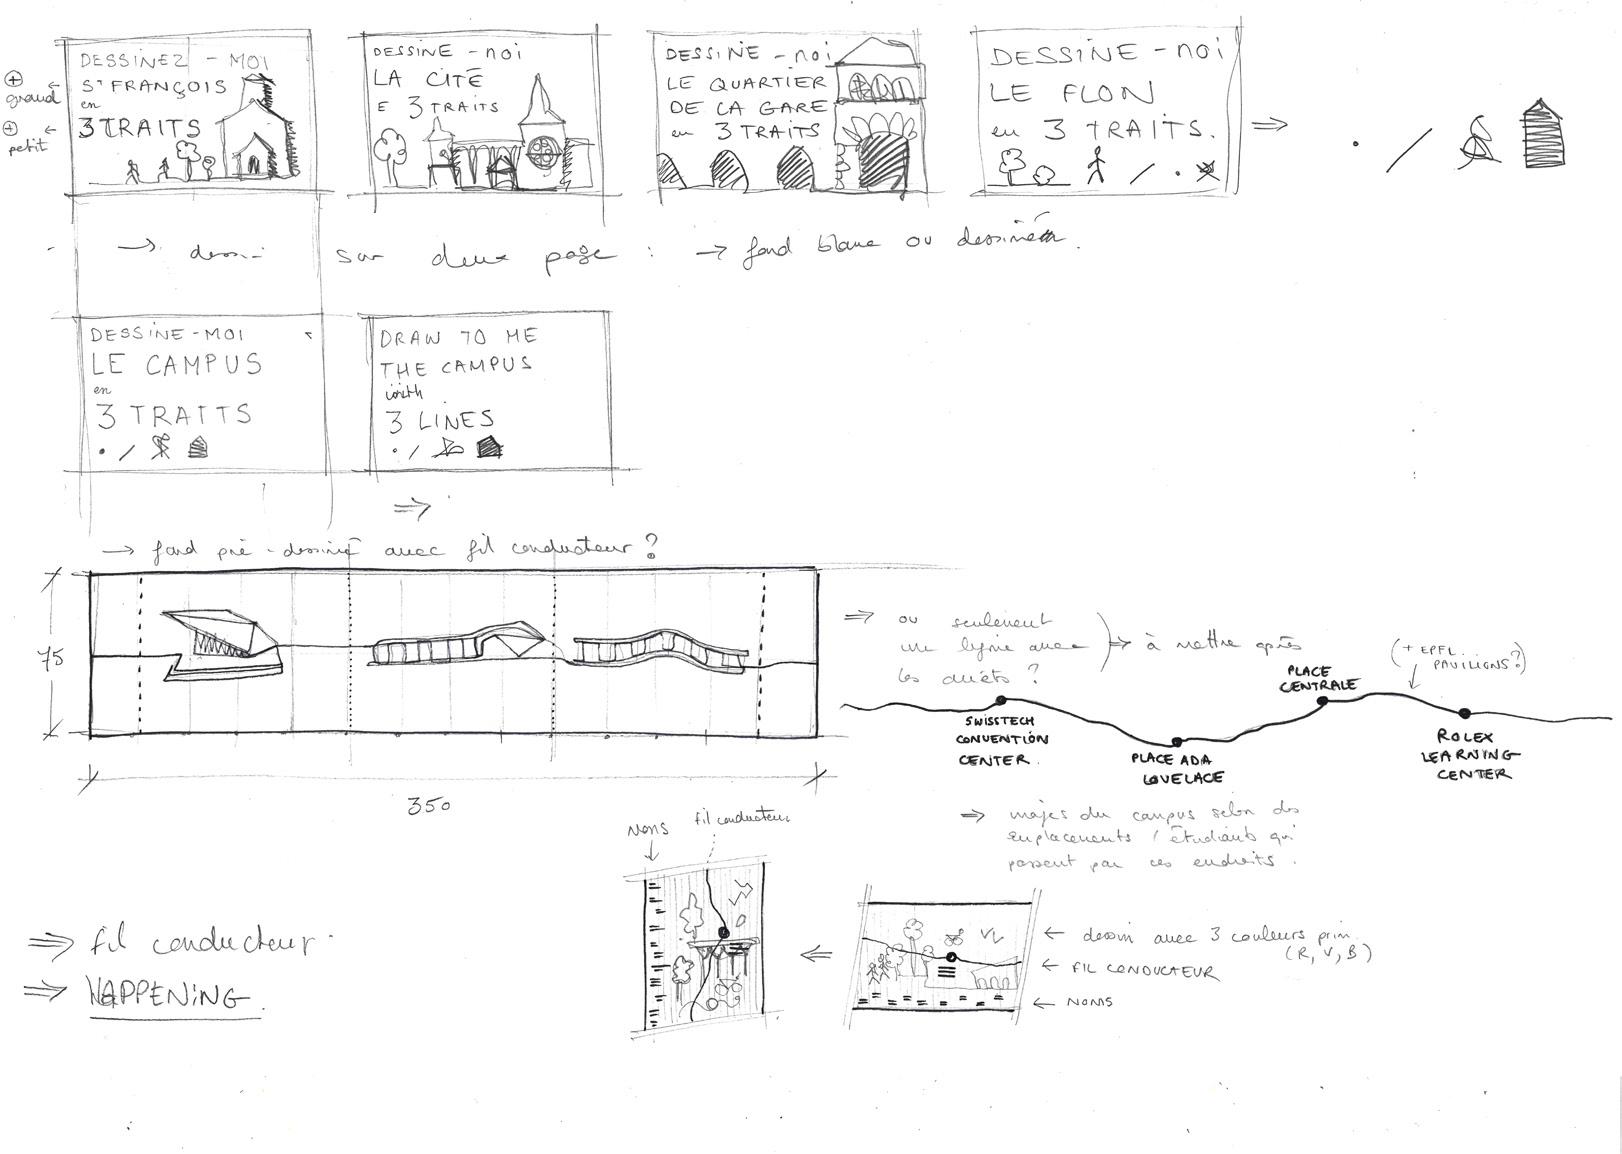 DESSINEZ - MOI
ST FRANÇOIS
en
3 TRAITS
+
grand
+
petit
DESSINE - moi
LA CITÉ
E 3 TRAITS
DESSINE - moi
LE QUARTIER
DE LA GARE
en 3 TRAITS
DESSINE - moi
LE FLON
en 3 TRAITS.
→ dessin sur deux page : → fond blanc ou dessiné.
DESSINE - MOI
LE CAMPUS
en
3 TRAITS
DRAW TO ME
THE CAMPUS
with
3 LINES
⇒
→ fond pré-dessiné avec fil conducteur ?
75
350
⇒ ou seulement
une ligne avec
les arrêts ?
→ à mettre après
(+ EPFL
PAVILIONS ?)
SWISSTECH
CONVENTION
CENTER.
PLACE ADA
LOVELACE
PLACE
CENTRALE
ROLEX
LEARNING
CENTER
⇒ images du campus selon des
emplacements / étudiants qui
passent par ces endroits.
NOMS
fil conducteur
← dessin avec 3 couleurs prim.
(R, V, B)
← FIL CONDUCTEUR
← NOMS
⇒ fil conducteur
⇒ HAPPENING